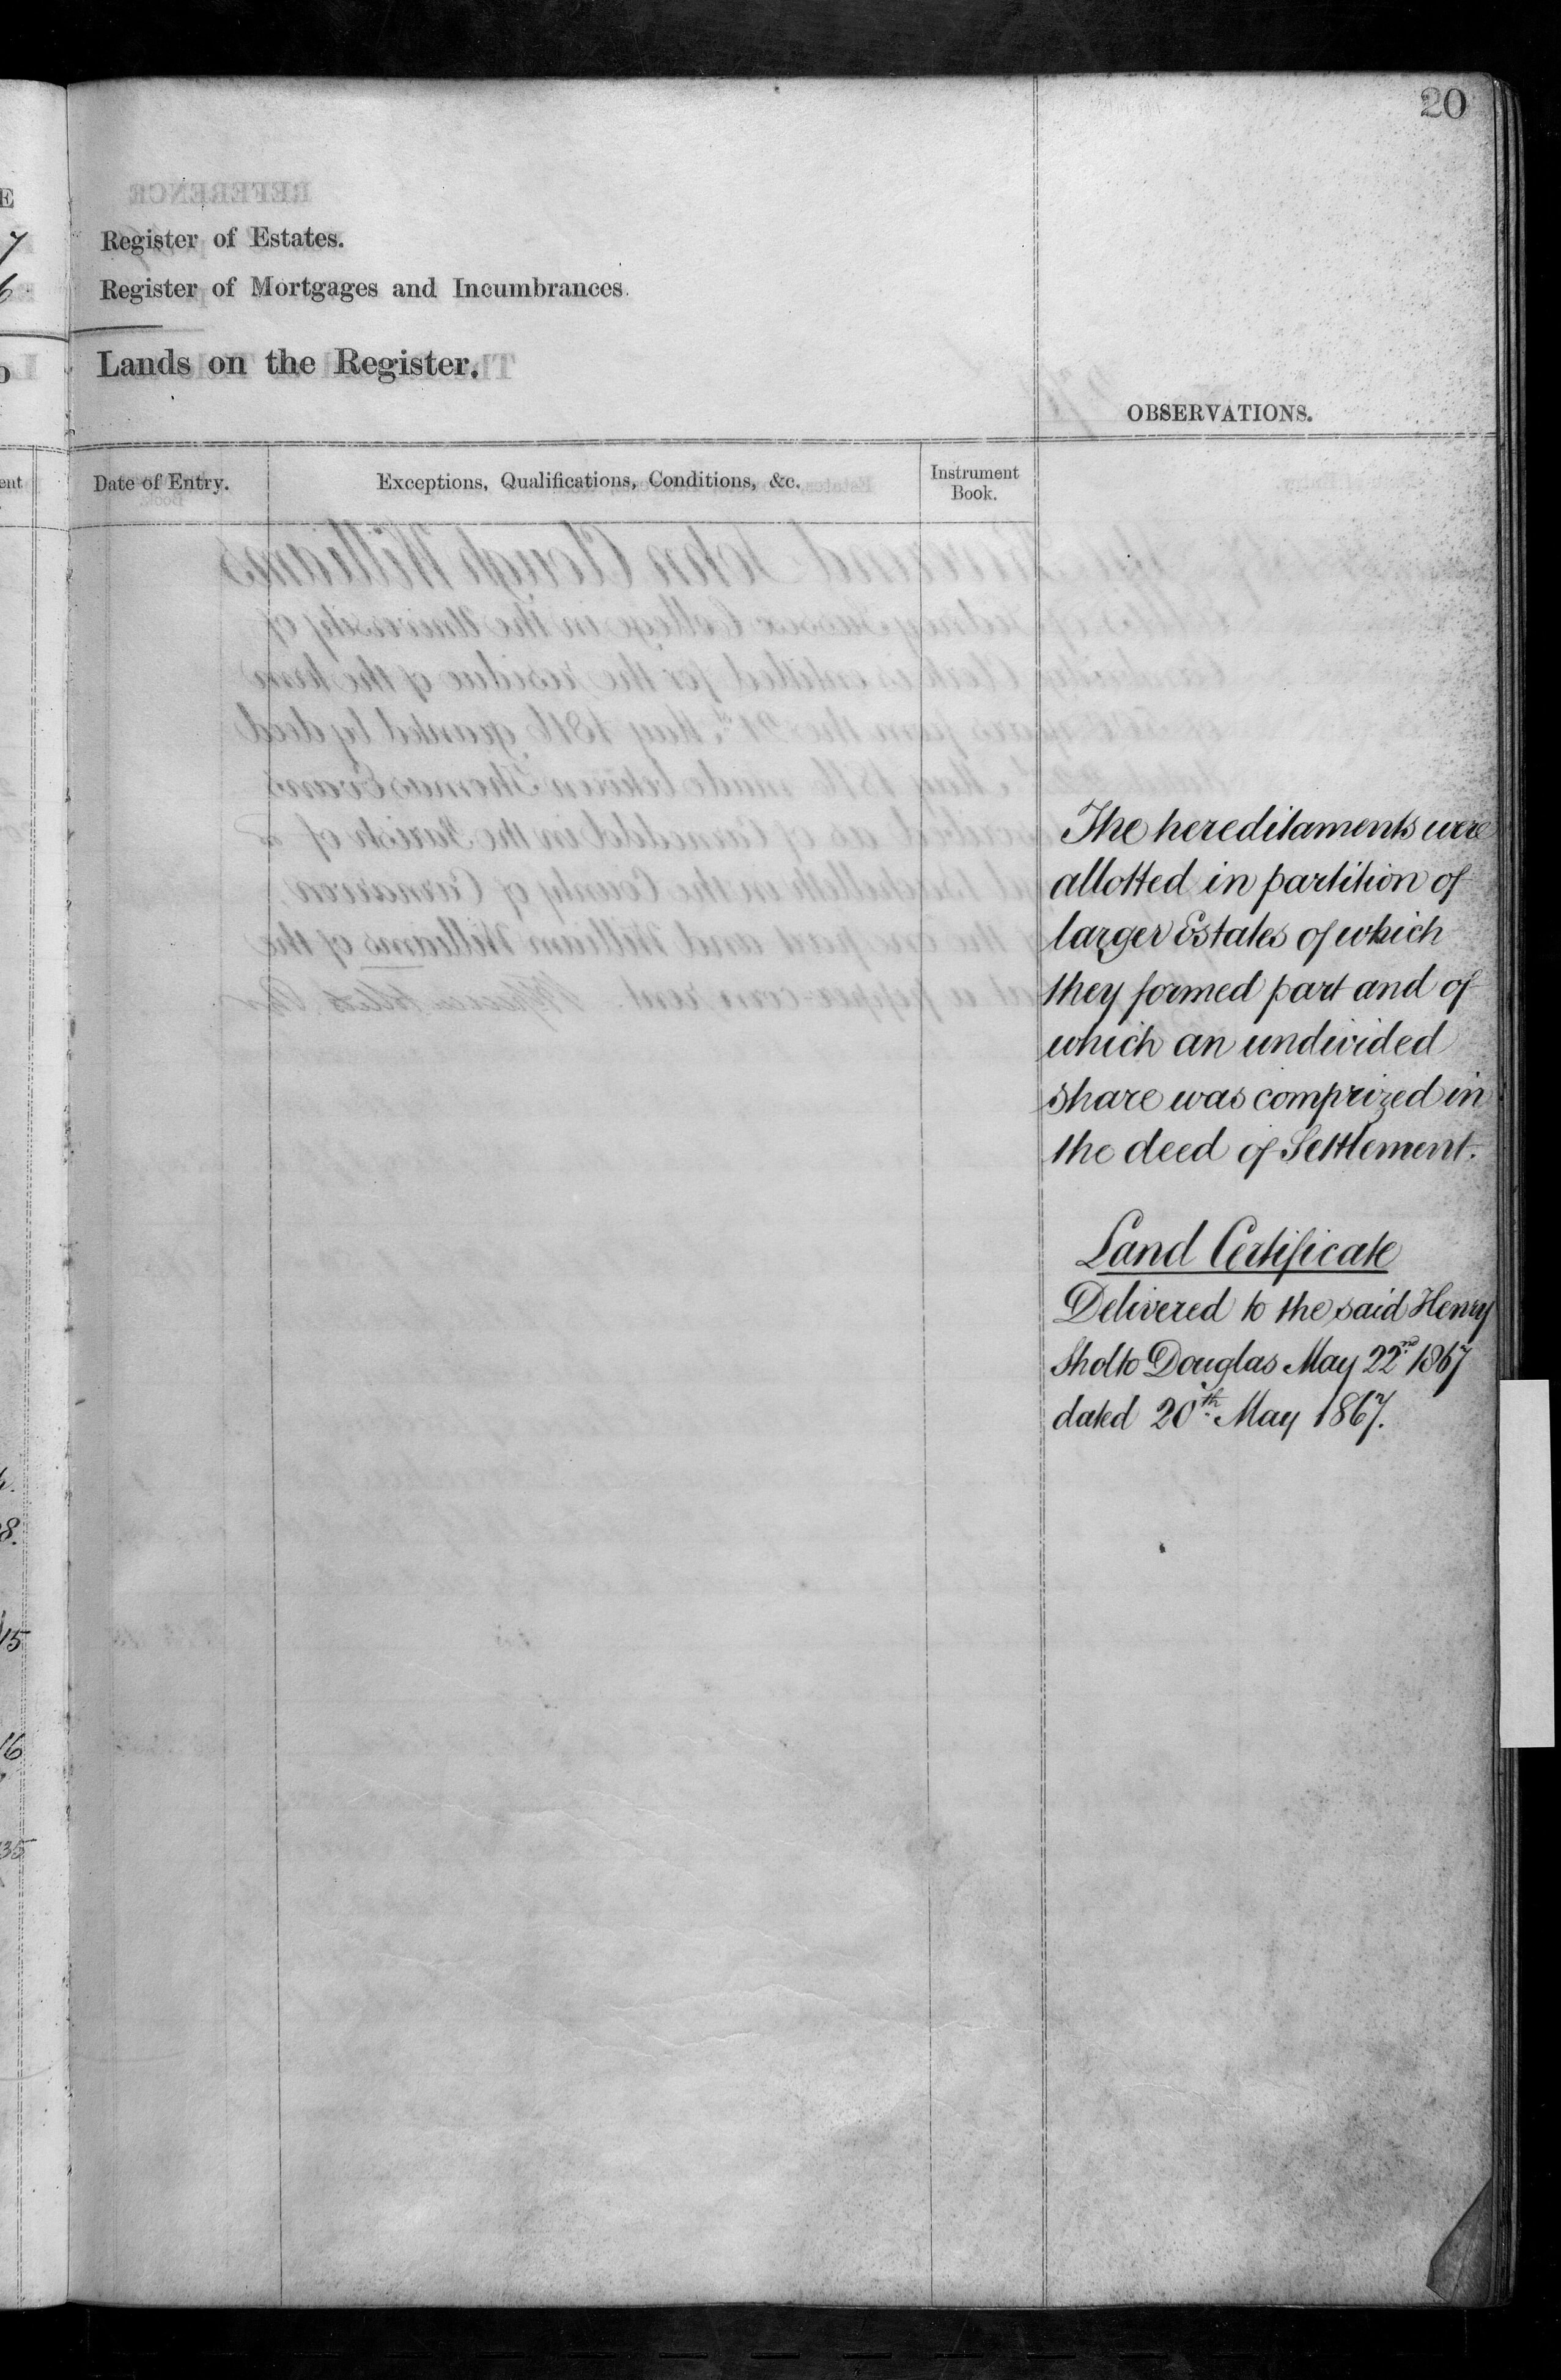 20
Register of Estates.
Register of Mortgages and Incumbrances.
Lands on the Register.
OBSERVATIONS.
Date of Entry.
Exceptions, Qualifications, Conditions, &c.
Instrument
Book.
The hereditaments were
allotted in partition of
larger Estates of which
they formed part and of
which an undivided
share was comprized in
the deed of Settlement.
Land Certificate
Delivered to the said Henry
Sholto Douglas May 22nd 1867
dated 20th May 1867.